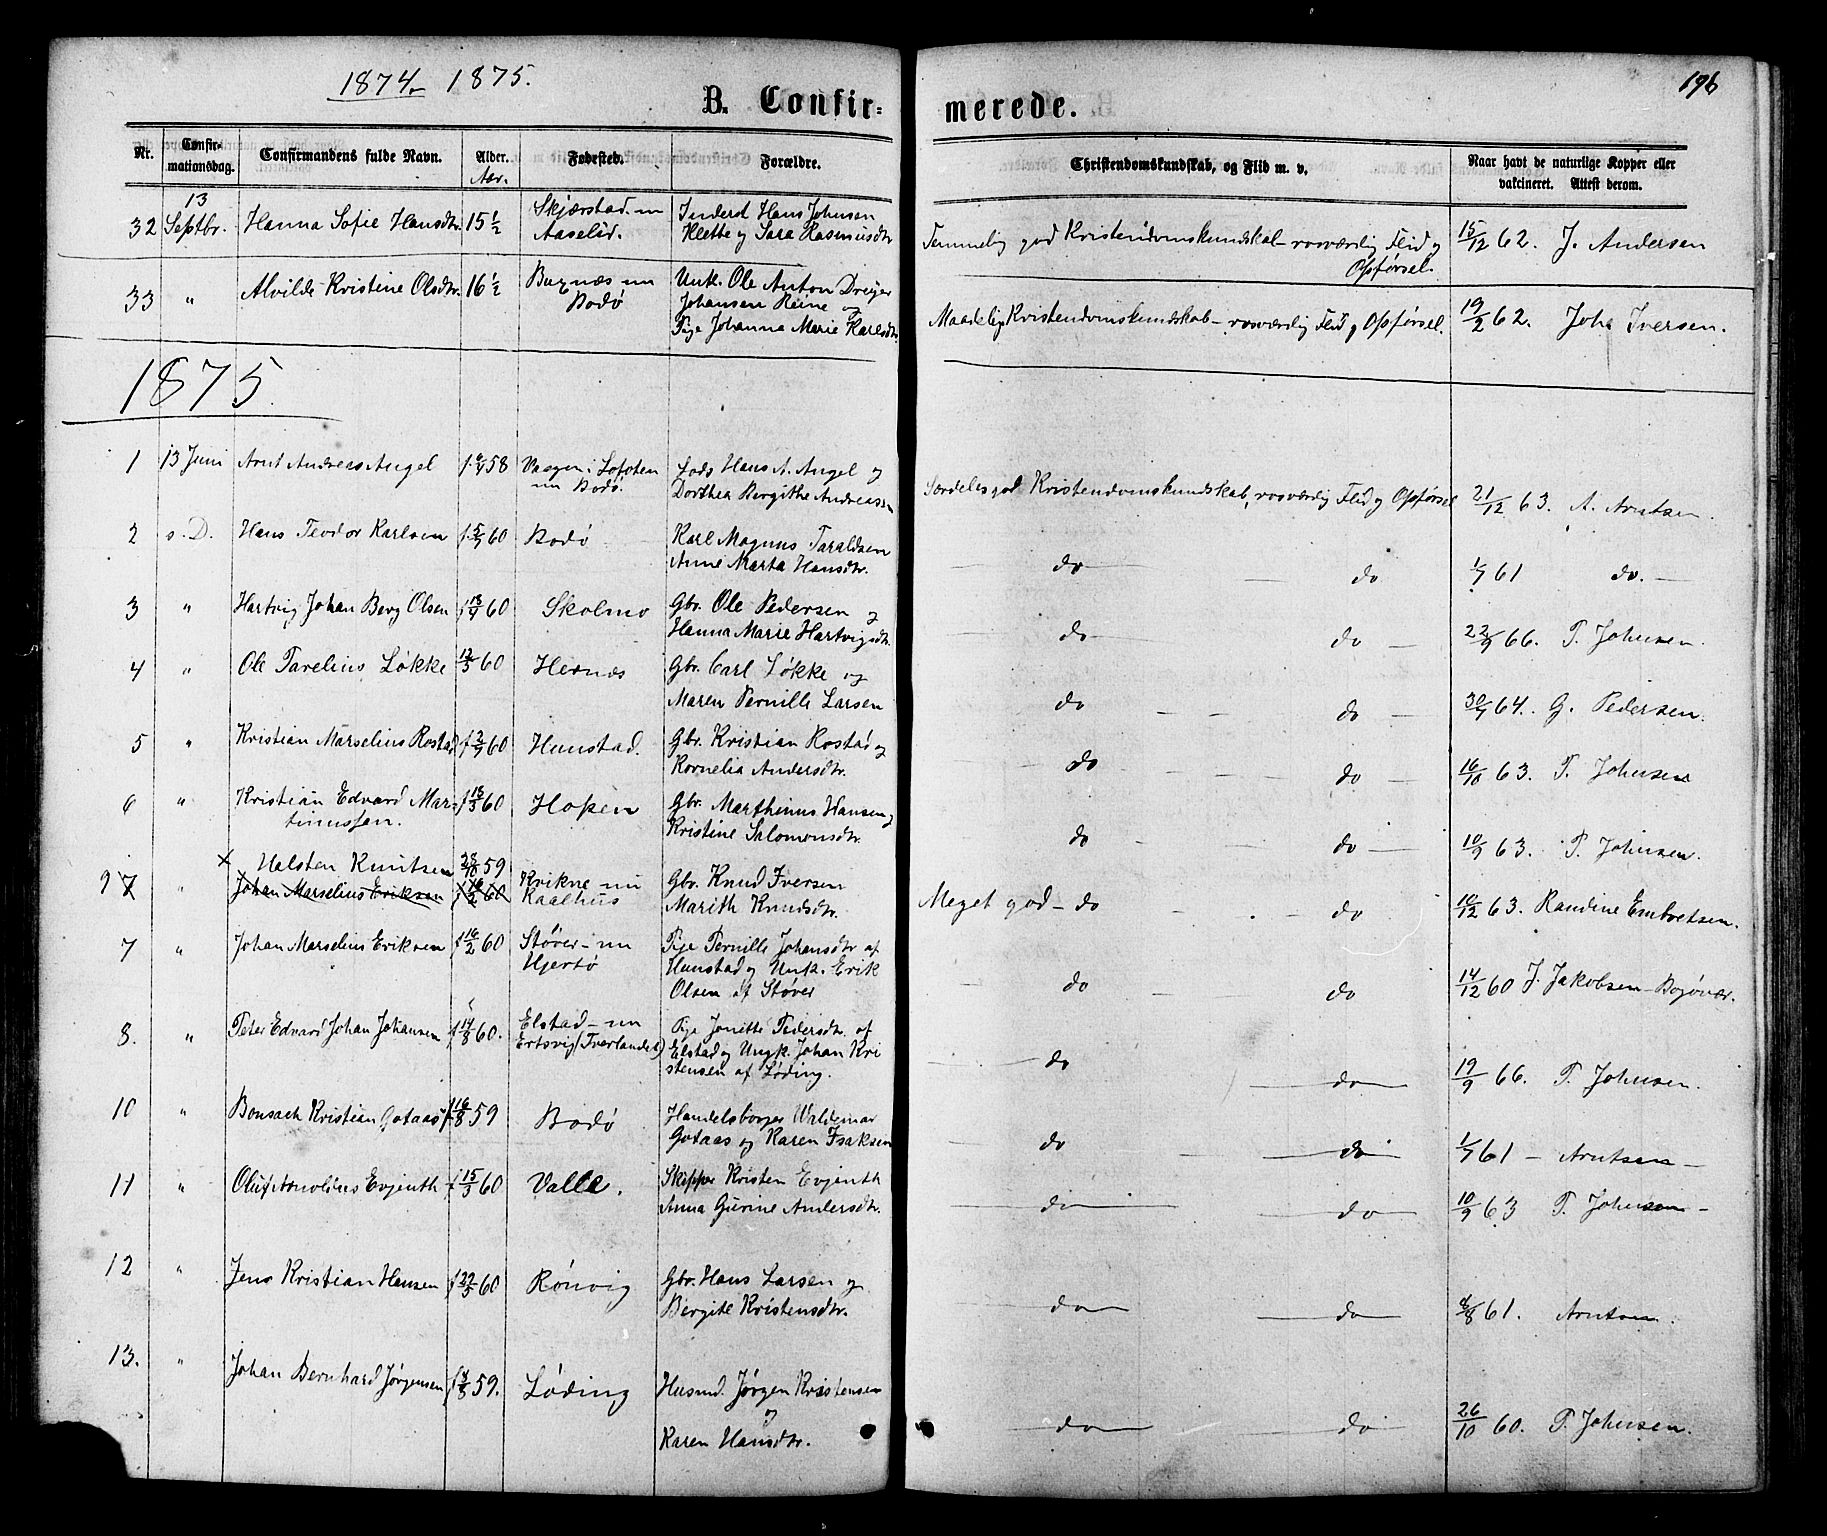 1874- 1875.
196
B. Confir-
merede.
Nr.
Confir-
mationsdag.
Confirmandens fulde Navn.
Alder.
Aar.
Fødested.
Forældre.
Christendomskundskab, og Flid m. v.
Naar havt de naturlige Kopper eller
vakcineret. Attest derom.
32 13 Septbr. Hanna Sofie Hansdtr. 15 1/2
Skjærstad nu
Aaselid.
Inderst Hans Johnsen
Klette og Sara Rasmusdtr
Temmelig god Kristendomskundskab - rosværdig Flid og
Opførsel.
15/12 62. J. Andersen
33 " Alvilde Kristine Olsdtr. 16 1/2
Burnæs nu
Bodø
Unk. Ole Anton Dreyer
Johansen Reine og
Pige Johanna Marie Karlsdtr.
Maadelig Kristendomskundskab - rosværdig Flid og Opførsel.
19/2 62. Joh. Iversen.
1875.
1 13 Juni Arnt Andreas Angel 58
Vaagen i Lofoten
nu Bodø.
Lods Hans A. Angel og
Dorthea Bergithe Andreass
Særdeles god Kristendomskundskab, rosværdig Flid og Opførsel
21/12 63. A. Arntsen.
2 s. D. Hans Teodor Karlsen f. 5/7 60 Bodø
Karl Magnus Taraldsen
Anne Marta Hansdtr.
do do 1/7 61 do.
3 " Hartvig Johan Berg Olsen f 13/4 60 Skolmo
Gbr. Ole Pedersen og
Hanna Marie Hartvigsdtr.
do do 22/9 66 P. Johnsen.
4 " Ole Parelius Løkke 12/3 60 Hernæs
Gbr. Carl Løkke og
Maren Pernille Larsen
do do 30/7 64. G. Pedersen.
5 " Kristian Marselius Rostad f 2/7 60 Hunstad.
Gbr. Kristian Rostad og
Kornelia Andersdtr.
do do 16/10 63. P. Johnsen
6 " Kristian Edvard Mar-
tinussen.
f 18/3 60 Hopen
Gbr. Marthinus Hansen og
Kristine Salomonsdtr.
do do 10/9 63. P. Johnsen.
x Halsten Knutsen 28/10 59
9 7 " Johan Marselius Eriksen f 16/2 60
Kvikne nu
Kaalhus
Gbr. Knud Iversen
Marith Knudsdtr.
Meget god - do do 10/12 63. Randine Embretsen.
7 " Johan Marselius Eriksen f 16/2 60
Støver - nu
Hjertø
Pige Pernille Johansdtr af
Hunstad og Unk. Erik
Olsen af Støver
do do 14/12 60 J. Jakobsen - Bogøvær.
8. " Peter Edvard Johan Johansen f 14/8 60.
Elstad - nu
Ertsvig (Tverlandet)
Pige Jonette Pedersdtr. af
Elstad og Ungk. Johan Kri
stensen af Løding.
do do 19/9 66. P. Johnsen.
10 " Bonsach Kristian Gotaas f 16/8 59 Bodø
Handelsborger Waldemar
Gotaas og Karen Isaksen
do do 1/7 61 - Arntsen -
11 " Oluf Arnolius Evjenth f 15/3 60 Valle.
Skipper Kristen Evjenth
Anna Gurine Andersdtr.
do do 10/9 63 P. Johnsen -
12 " Jens Kristian Hansen f 22/5 60 Rønvig
Gbr. Hans Larsen og
Bergite Kristensdtr.
do do 61. Arntsen.
13. " Johan Bernhard Jørgensen 59. Løding
Husmd. Jørgen Kristensen
og
Karen Hansdtr.
do do 26/10 60. P. Johnsen.